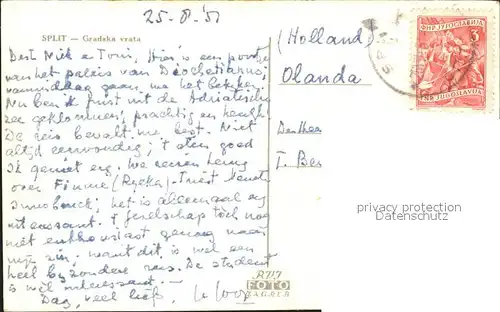 25-8-'51
SPLIT — Gradska vrata
Best Niek e Toni, Hier is een poortje
van het paleis van Diocletianus;
vanmiddag gaan we het bekijken.
Nu ben ik juist uit de Adriatische
zee geklommen; prachtig en heerlijk!
De reis bevalt me best. Niet
altijd eenvoudig; 't eten goed
Ik geniet erg. We reizen terug
over Fiume (Rijeka) - Triest Venetië
Innsbruck; het is allemaal erg
interessant. 't gezelschap toch nog
niet enthousiast genoeg naar
mijn zin. want dit is wel een
heel bijzondere reis. De student
is wel interessant.—
Dag, veel liefs,
(Holland)
Olanda
Den Heer
T. Bes
ФНР ЈУГОСЛАВИЈА
3
FNR JUGOSLAVIJA
privacy protection
watermark
FOTO
ZAGREB